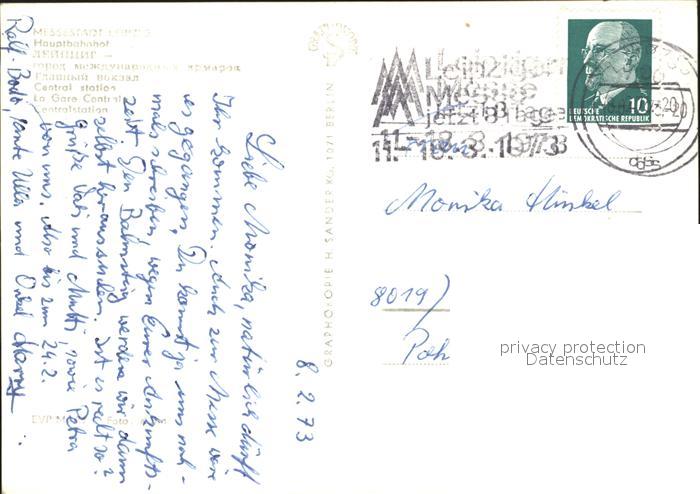 MESSESTADT LEIPZIG
Hauptbahnhof
ЛЕЙПЦИГ –
город международных ярмарок
Главный вокзал
Central station
La Gare Centrale
Centralstation
GRAPHOKOPIE H. SANDER KG, 1071 BERLIN
Leipziger
Messe
jetzt 8 Tage
11.-18.3.1973
DEUTSCHE
DEMOKRATISCHE REPUBLIK
10
8.2.73
Liebe Monika, natürlich dürft
Ihr kommen. Auch zur Messe wäre
es gegangen. Du kannst ja uns noch-
mals schreiben wegen Eurer Ankunfts-
zeit. Den Bahnsteig werden wir dann
selbst heraussuchen. Ist es recht so?
Grüße Vati und Mutti, sowie Petra
von uns. Also bis zum 24.2.
Ralf Bodo, Tante Ulla und Onkel Harry
Monika Hinkel
8019)
privacy protection
Datenschutz